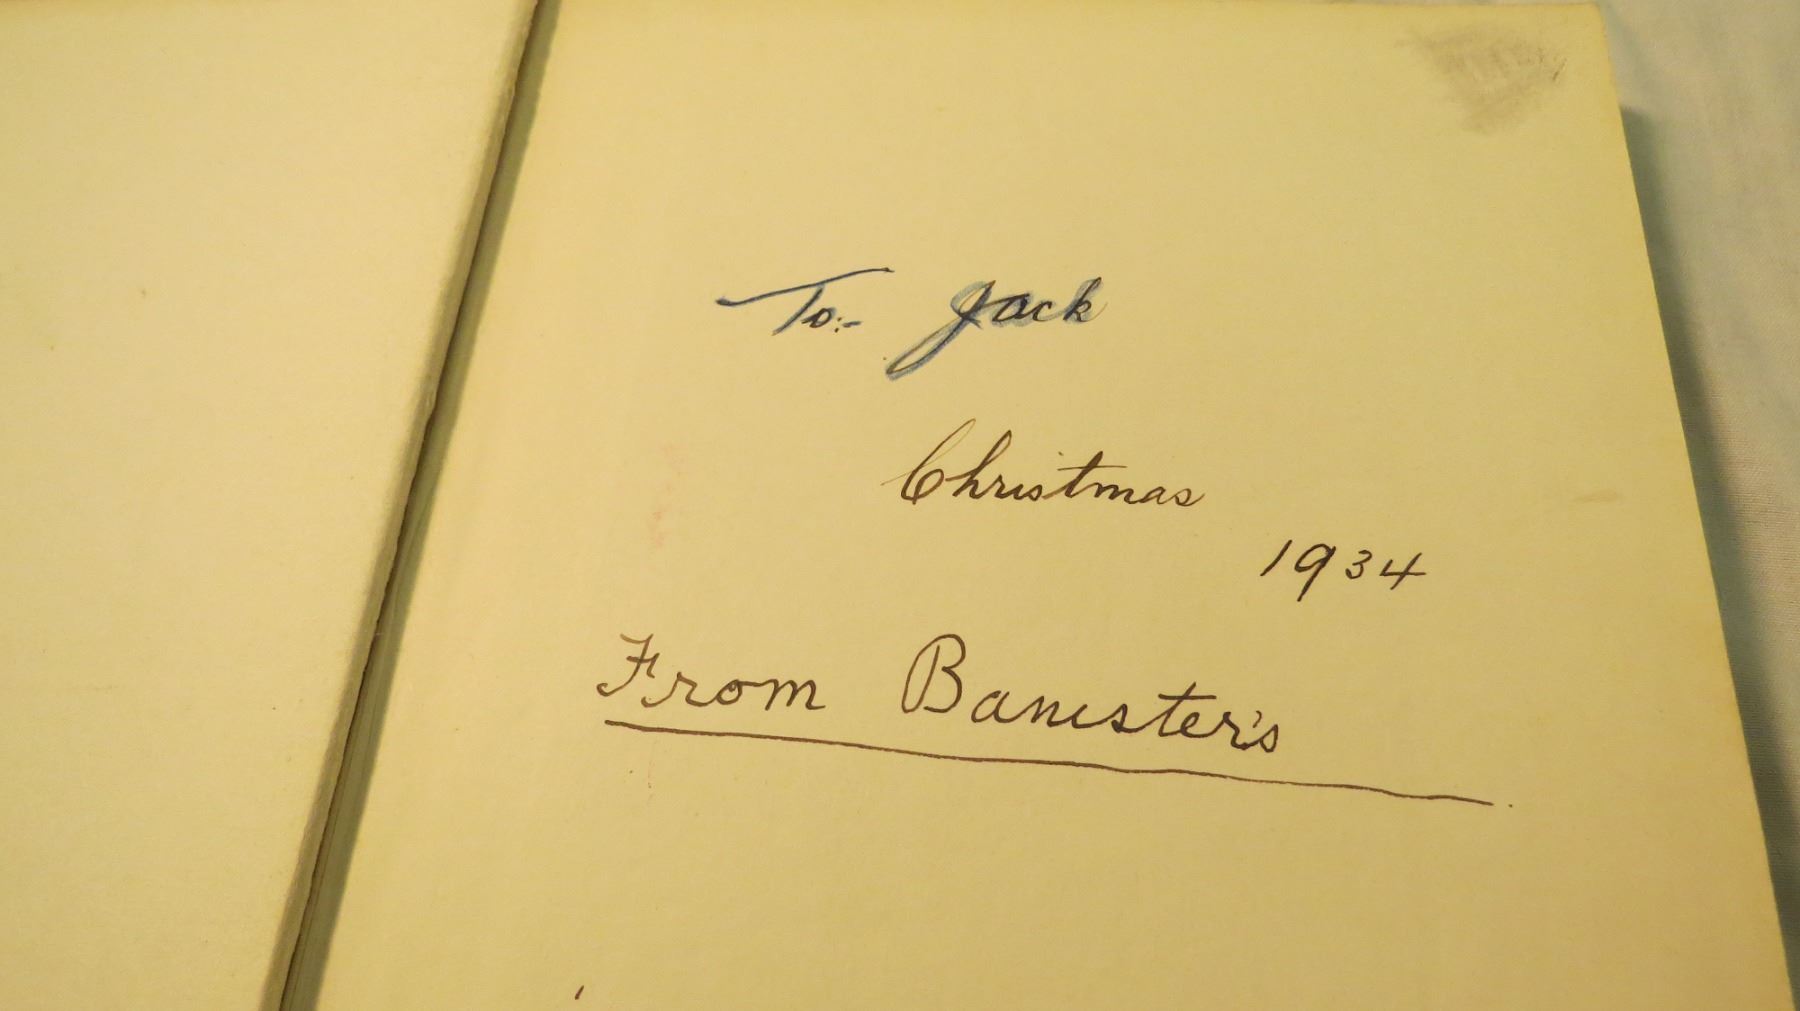 To:- Jack
Christmas
1934
From Banister's